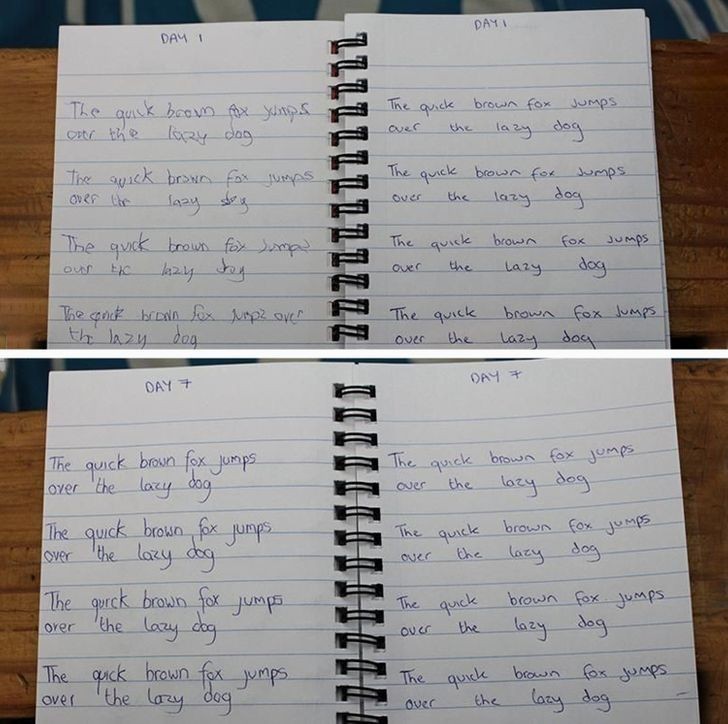 DAY 1
The quick brown fox jumps
over the lazy dog
The quick brown fox jumps
over the lazy dog
The quick brown fox jumps
over the lazy dog
The quick brown fox jumps over
the lazy dog
DAY 1
The quick brown fox Jumps
over the lazy dog
The quick brown fox Jumps
over the lazy dog
The quick brown fox Jumps
over the Lazy dog
The quick brown fox Jumps
over the Lazy dog
DAY 7
The quick brown fox jumps
over the lazy dog
The quick brown fox jumps
over the lazy dog
The quick brown fox jumps
over the lazy dog
The quick brown fox jumps
over the lazy dog
DAY 7
The quick brown fox jumps
over the lazy dog
The quick brown fox jumps
over the lazy dog
The quick brown fox jumps
over the lazy dog
The quick brown fox jumps
over the lazy dog